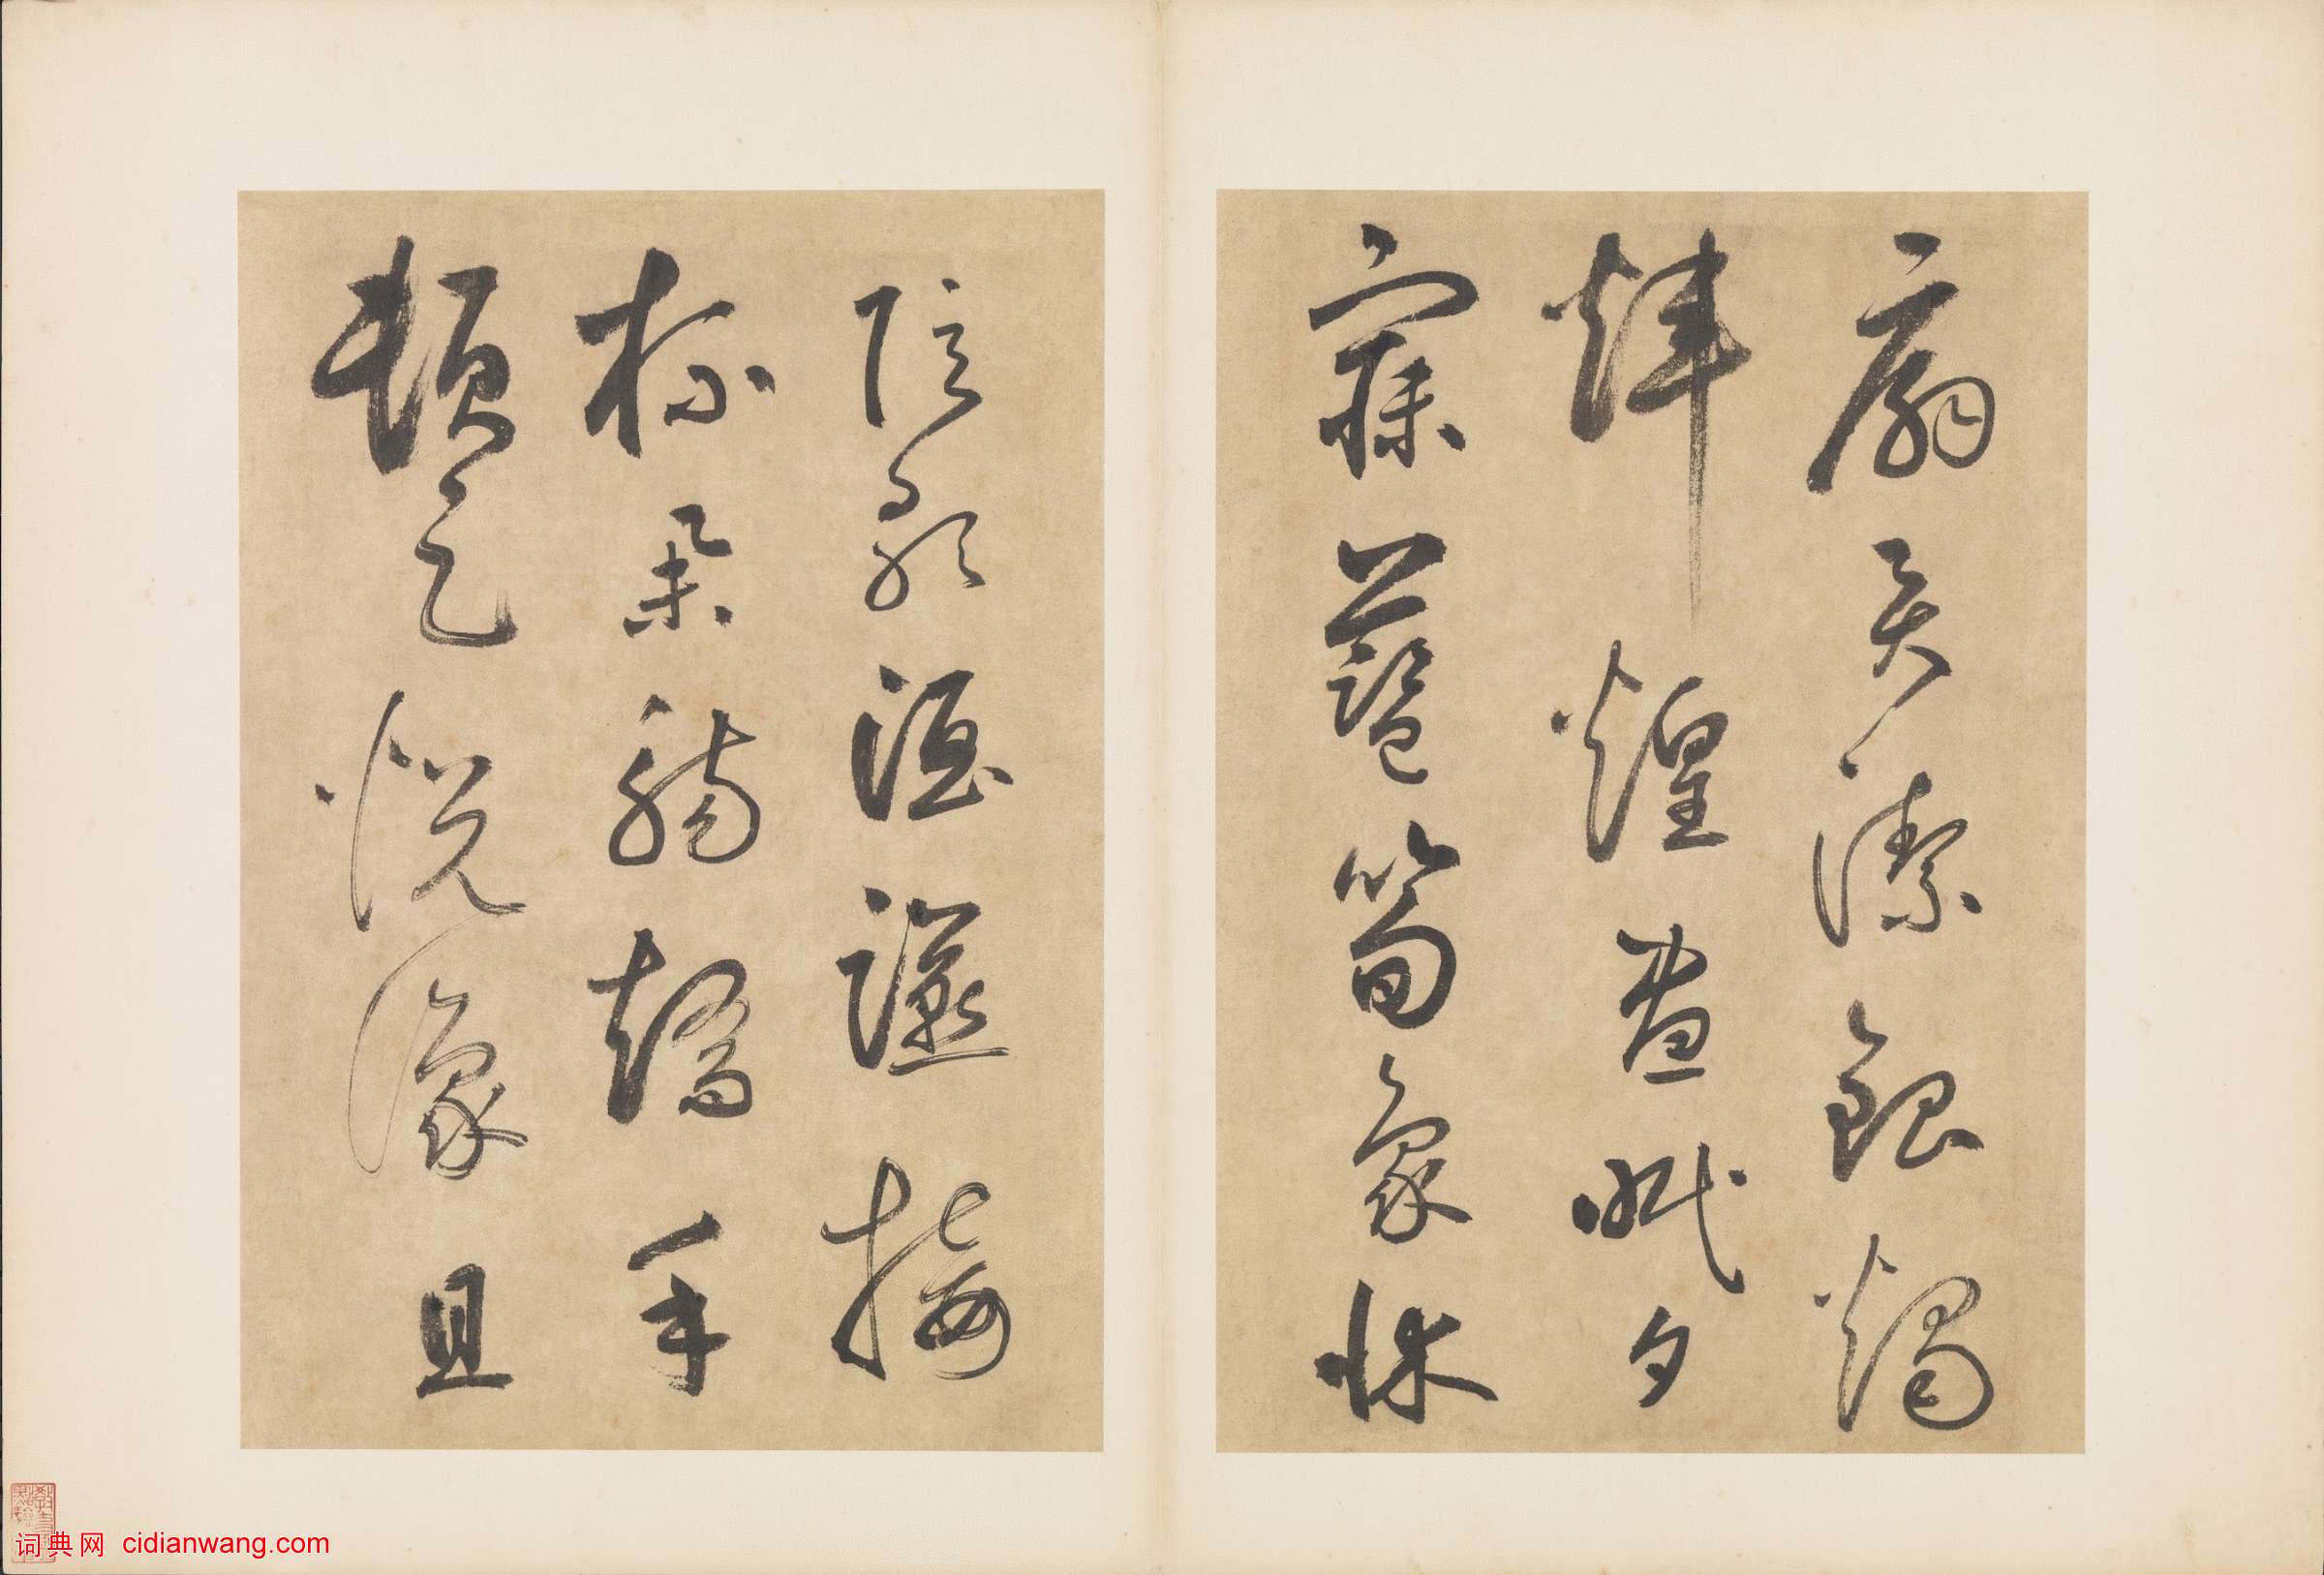 扇員潔銀燭
煒煌晝眠夕
寐藍筍象牀
弦歌酒讌接
杯舉觴矯手
頓足悅豫且
词典网 cidianwang.com